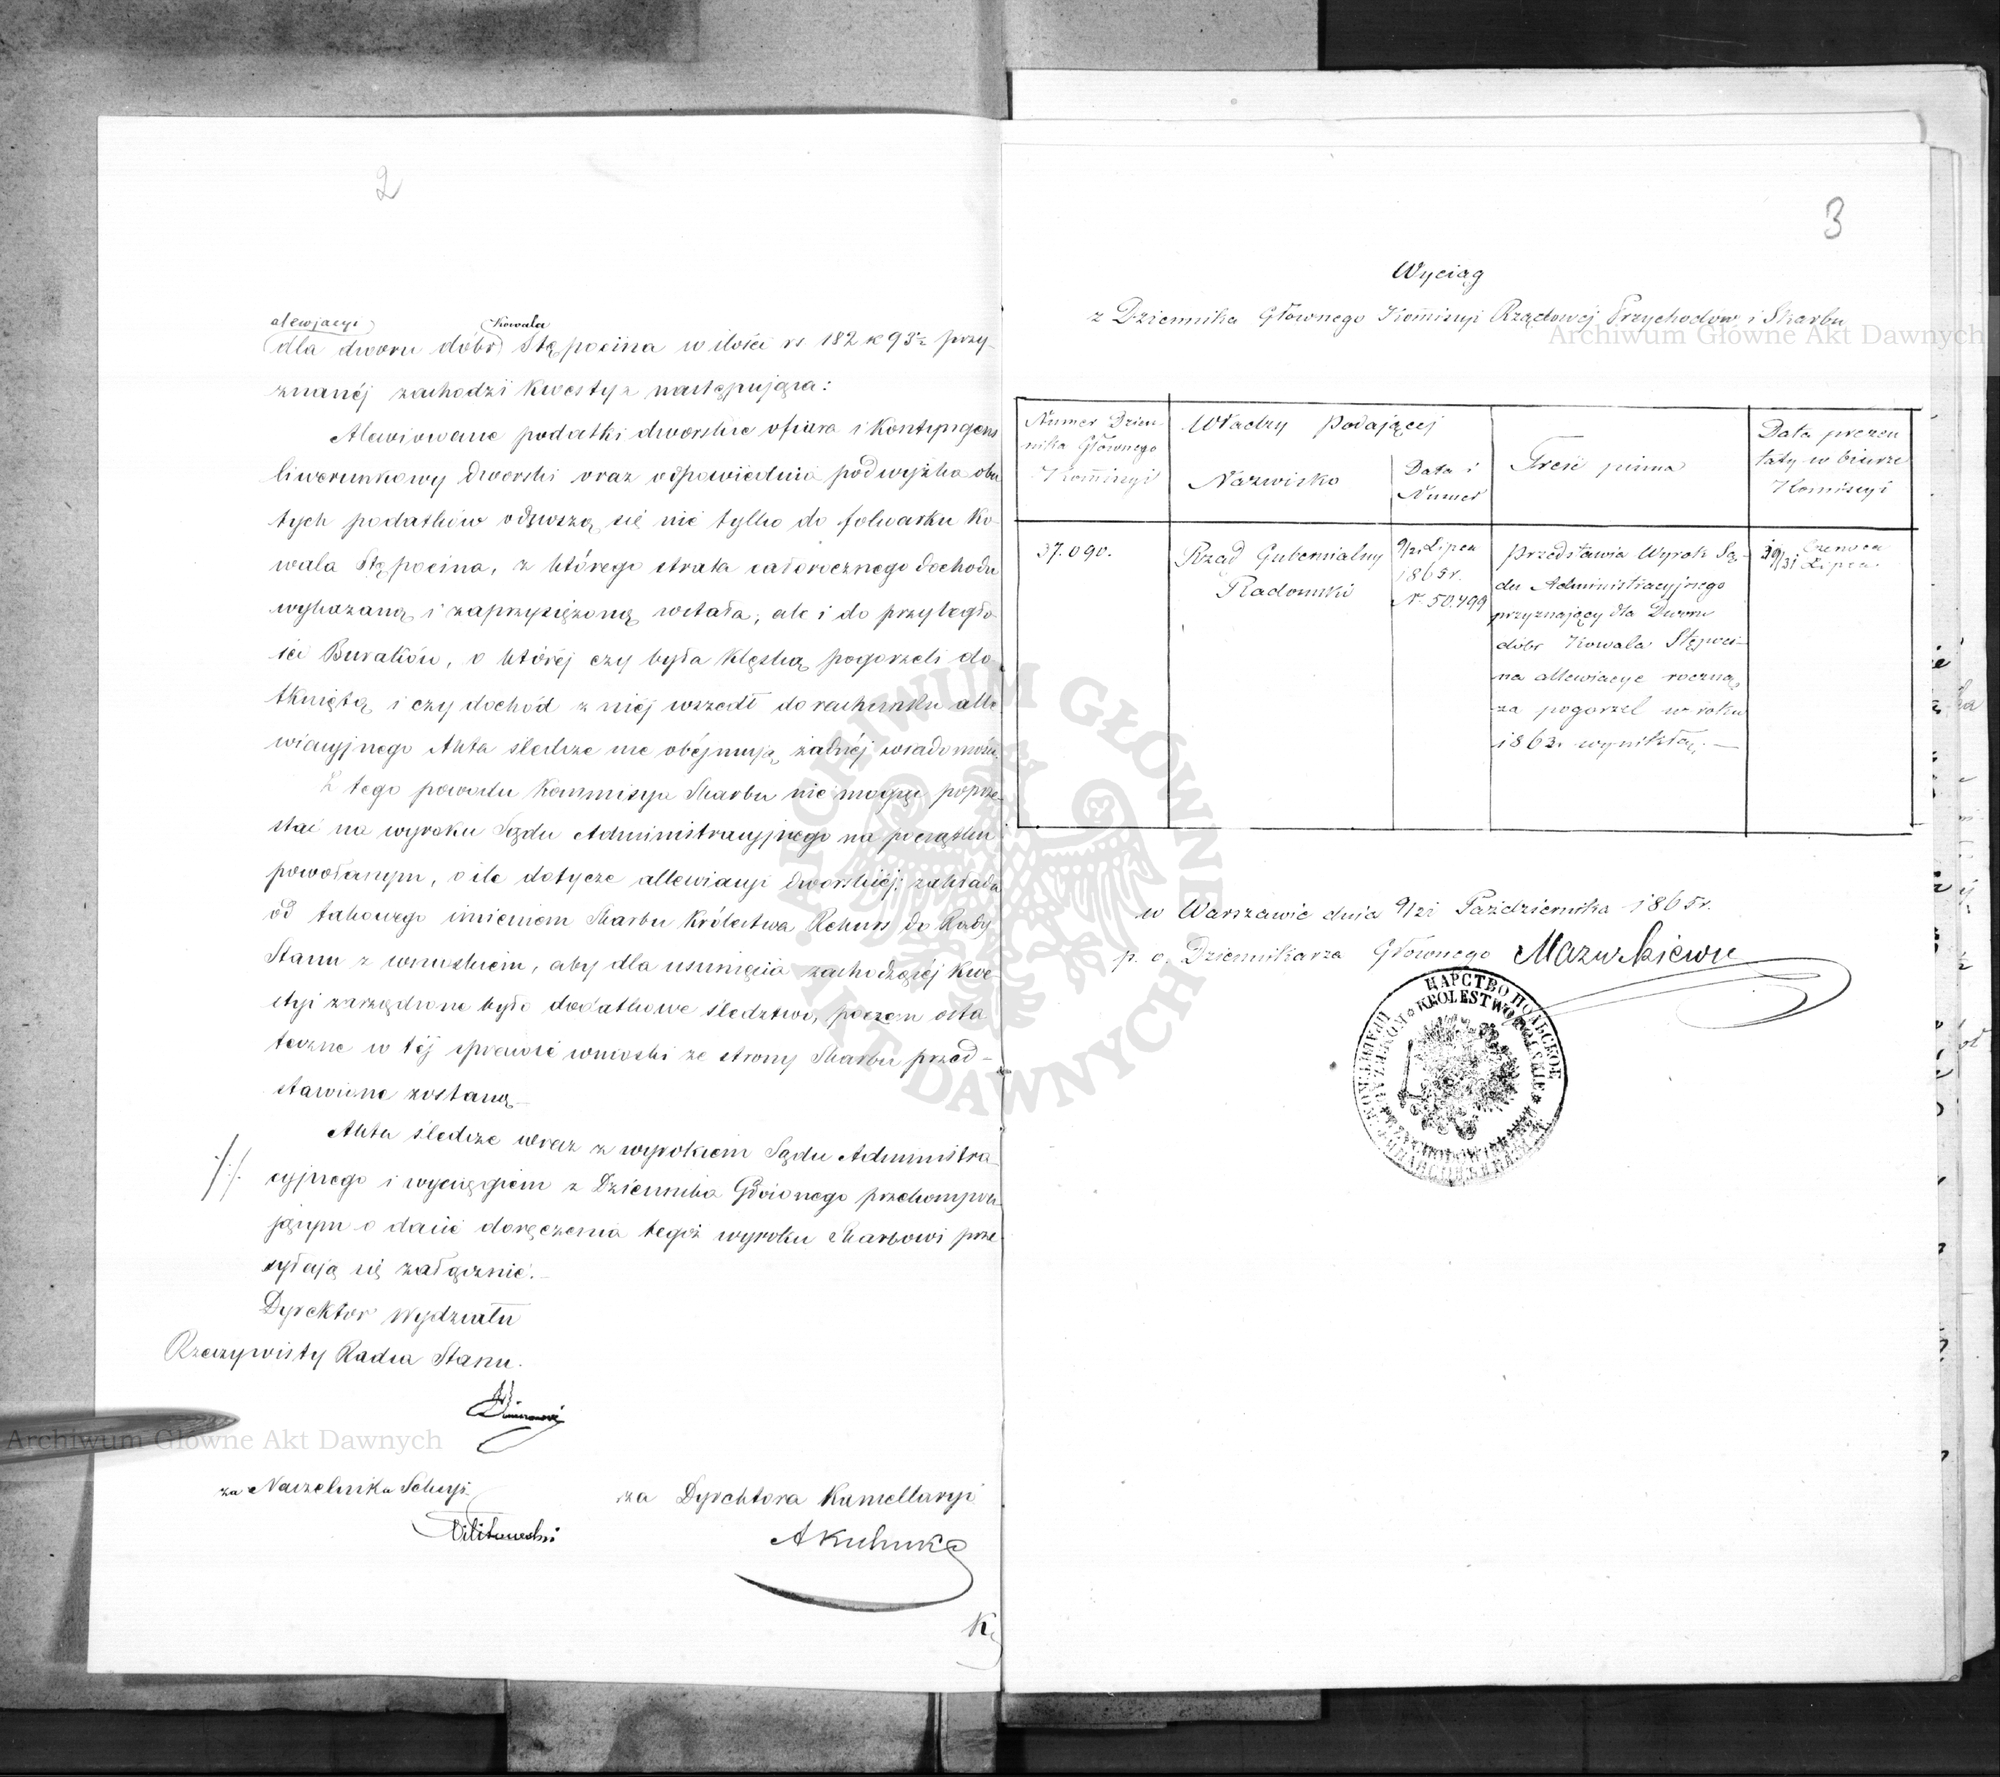 2
alewjacyi
Kowala
dla dworu dóbr Stępocina w ilości rs 182 k 93½ przy-
znanéj zachodzi Kwestya następująca:
Alewiowane podatki dworskie ofiara i Kontyngens
liwerunkowy dworski oraz odpowiednia podwyżka obu
tych podatków odnoszą się nie tylko do folwarku Ko-
wala Stępocina, z którego strata całorocznego dochodu
wykazaną i zaprzysiężoną została, ale i do przyległo-
ści Buraków, o któréj czy była klęską pogorzeli do-
tkniętą i czy dochód z niéj wszedł do rachunku alle-
wiacyjnego Akta śledcze nie obéjmują żadnéj wiadomości.
Z tego powodu Kommisya Skarbu nie mogąc poprze-
stać na wyroku Sądu Administracyjnego na początku
powołanym, o ile dotycze allewiacyi dworskiéj, zakłada
od takowego imieniem Skarbu Królestwa Rekurs do Rady
Stanu z wnioskiem, aby dla usunięcia zachodzącéj Kwe-
styi zarządzone było dodatkowe śledztwo, poczem osta
teczne w téj sprawie wnioski ze strony Skarbu przed-
stawione zostaną.
Akta śledcze wraz z wyrokiem Sądu Administra-
cyjnego i wyciągiem z Dziennika Głównego przekonywa-
jącym o dacie doręczenia tegoż wyroku Skarbowi prze-
syłają się załącznie.
Dyrektor Wydziału
Rzeczywisty Radca Stanu.
za Naczelnika Sekcyi
za Dyrektora Kancellaryi
3
Wyciąg
z Dziennika Głównego Kommisyi Rządowéj Przychodów i Skarbu
Numer Dzien-
nika Głównego
Kommisyi
Władzy podającej
Nazwisko
Data i
Numer
Treść pisma
Data prezen
taty w biurze
Kommisyi
37.090.
Rząd Gubernialny
Radomski
9/21 Lipca
1865 r.
N. 50.499
przedstawia Wyrok Są-
du Administracyjnego
przyznający dla Dworu
dóbr Kowala Stępoci-
na allewiacye roczną
za pogorzel w roku
1863 wynikłą.—
19/31 Czerwca
Lipca
w Warszawie dnia 9/21 Października 1865 r.
p. o. Dziennikarza Głównego Mazurkiewicz
ЦАРСТВО ПОЛЬСКОЕ
KRÓLESTWO POLSKIE
ARCHIWUM GŁÓWNE AKT DAWNYCH
Archiwum Główne Akt Dawnych
Archiwum Główne Akt Dawnych